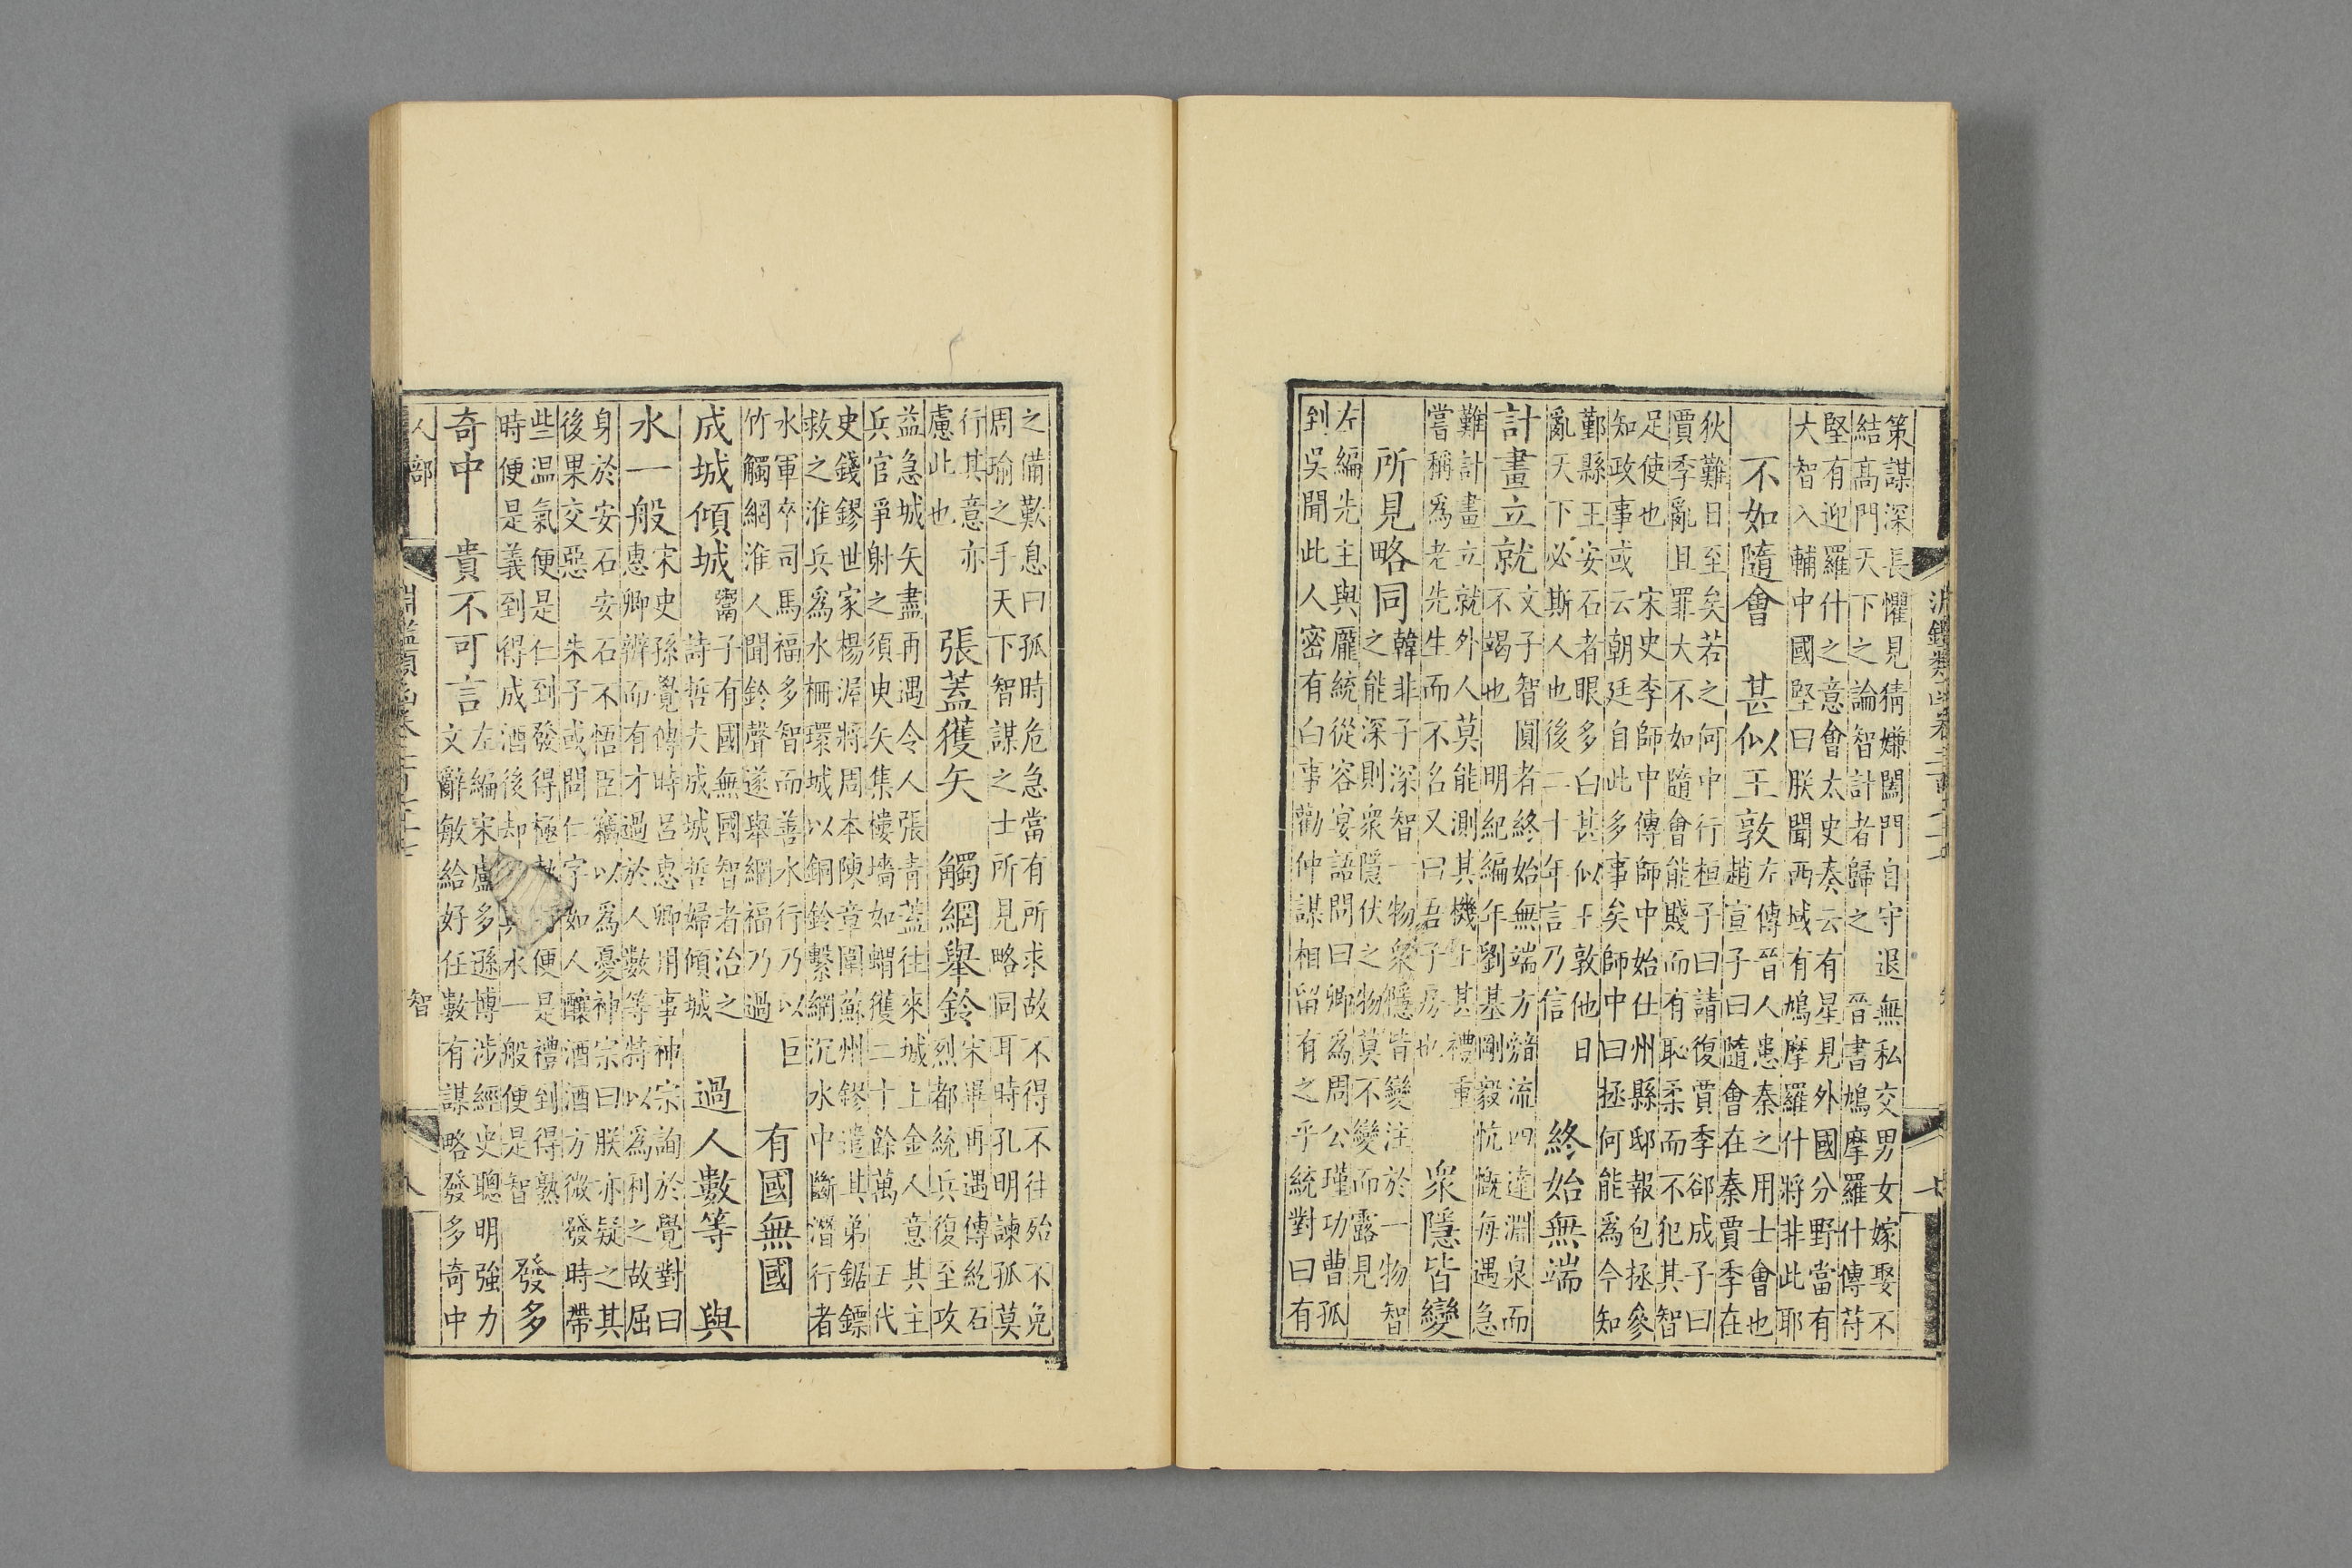 策謀深長懼見猜嫌闔門自守退無私交男女嫁娶不
結高門天下之論智計者歸之 晉書鳩摩羅什傳苻
堅有迎羅什之意會太史奏云有星見外國分野當有
大智入輔中國堅曰朕聞西域有鳩摩羅什將非此耶
不如隨會 甚似王敦 左傳晉人患秦之用士會也
趙宣子曰隨會在秦賈季在
狄難日至矣若之何中行桓子曰請復賈季郤成子曰
賈季亂且罪大不如隨會能賤而有恥柔而不犯其智
足使也 宋史李師中傳師中始仕州縣邸報包拯參
知政事或云朝廷自此多事矣師中曰拯何能爲今知
鄞縣王安石者眼多白甚似王敦他日
亂天下必斯人也後二十年言乃信 終始無端
計畫立就 文子智圓者終始無端方流四達淵泉而
不竭也 明紀編年劉基剛毅慷慨每遇急
難計畫立就外人莫能測其機上甚禮重
嘗稱爲老先生而不名又曰吾子房也 衆隱皆變
所見略同 韓非子深智一物衆隱皆變注於一物智
之能深則衆隱伏之物莫不變而露見
左編先主與龐統從容宴語問曰卿爲周公瑾功曹孤
到吳聞此人密有白事勸仲謀相留有之乎統對曰有
之備歎息曰孤時危急當有所求故不得不往殆不免
周瑜之手天下智謀之士所見略同耳時孔明諫孤莫
行其意亦
慮此也 張蓋獲矢 觸綱舉鈴 宋畢再遇傳紇石
烈都統兵復至攻
益急城矢盡再遇令人張青蓋往來城上金人意其主
兵官爭射之須臾矢集樓墻如蝟獲二十餘萬 五代
史錢鏐世家楊渥將周本陳章圍蘇州鏐遣其弟鋸鏢
救之淮兵爲水柵環城以銅鈴繫網沉水中斷潛行者
水軍卒司馬福多智而善水行乃以巨
竹觸綱淮人聞鈴聲遂舉網福乃過 有國無國
成城傾城 鬻子有國無國智者治之
詩哲夫成城哲婦傾城 過人數等 與
水一般 宋史孫覺傳時呂惠卿用事神宗詢於覺對曰
惠卿辨而有才過於人數等特以爲利之故屈
身於安石安石不悟臣竊以爲憂神宗曰朕亦疑之其
後果交惡 朱子或問仁字如人釀酒酒方微發時帶
些温氣便是仁到發得極便是禮到得熟
時便是義到得成酒後却水一般便是智 發多
奇中 貴不可言 左編宋盧多遜博涉經史聰明強力
文辭敏給好任數有謀略發多奇中
人部 智 八